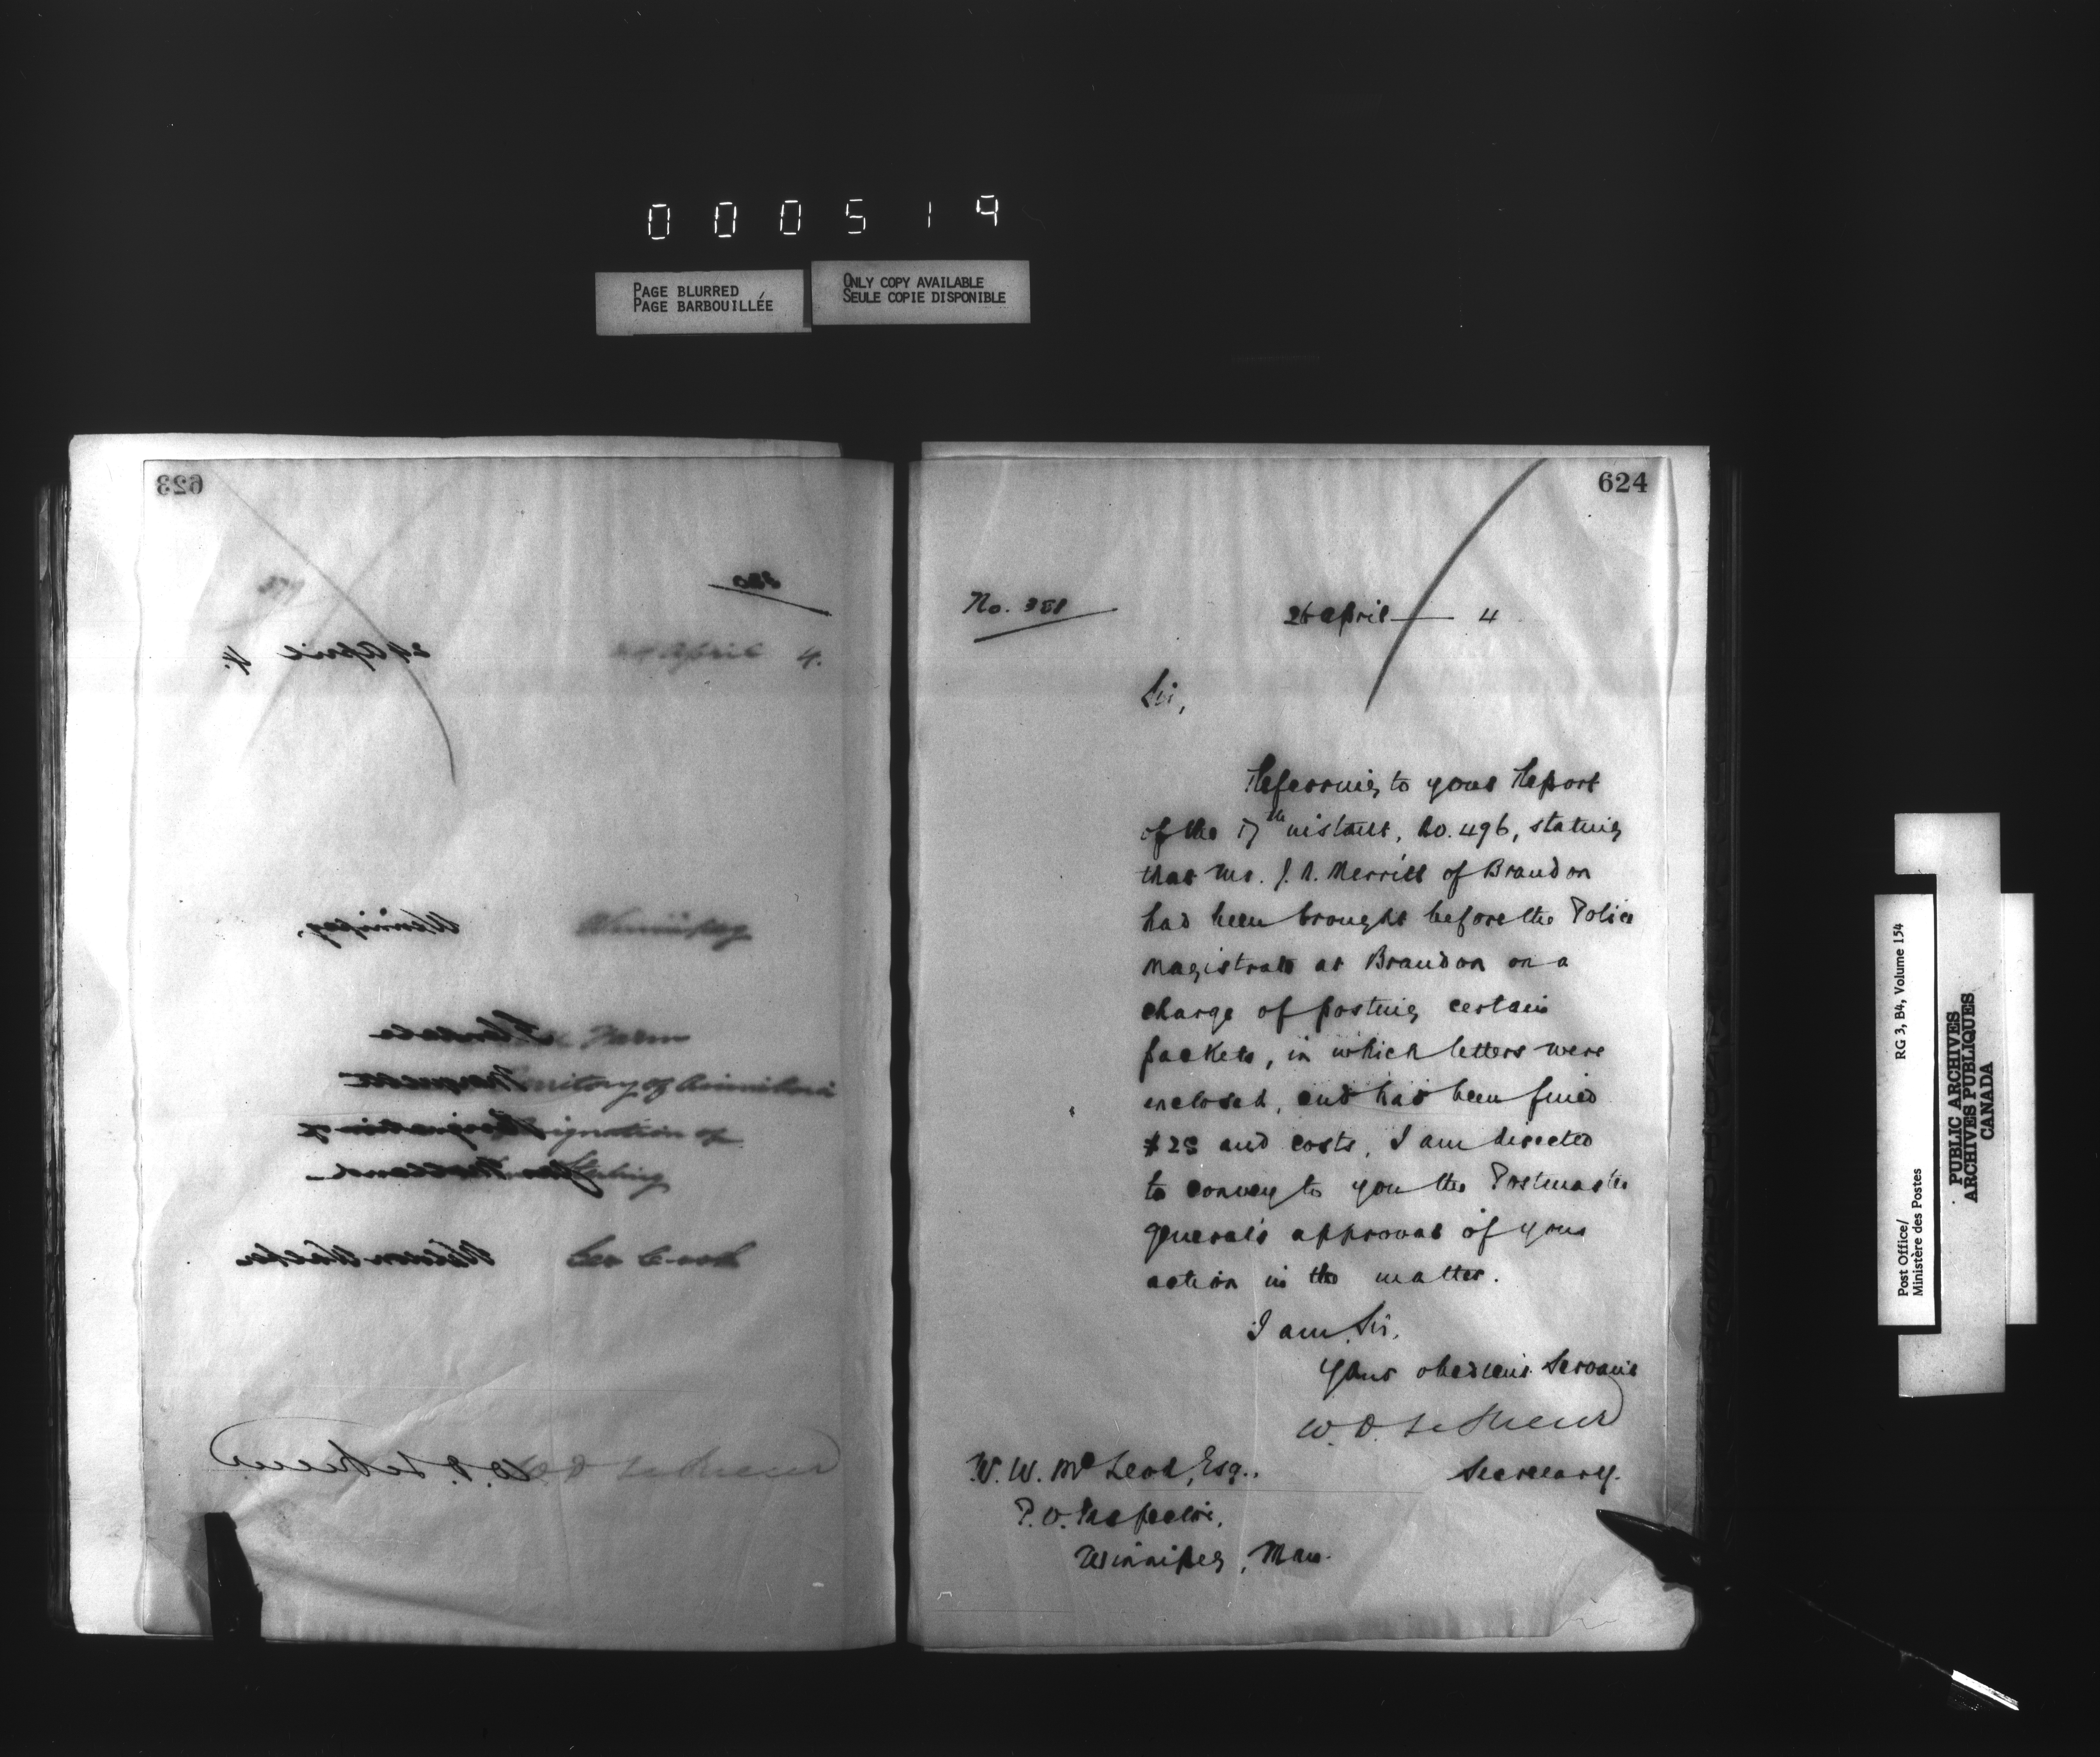 000519
PAGE BLURRED
PAGE BARBOUILLÉE
ONLY COPY AVAILABLE
SEULE COPIE DISPONIBLE
623
380
24 April 4.
April 4.
Winnipeg,
Winnipeg
Farm
Marquette
Territory of Assiniboia
Resignation of
Resignation of
Geo Cook
W.D. LeSueur
W D LeSueur
624
No. 381
26 April 4
Sir,
Referring to your Report
of the 17th instant, No. 496, stating
that Mr. J. A. Merritt of Brandon
had been brought before the Police
Magistrate at Brandon on a
charge of posting certain
packets, in which letters were
enclosed, and had been fined
$25 and costs, I am directed
to convey to you the Postmaster
General's approval of your
action in the matter.
I am, Sir,
Your obedient Servant
W. D. LeSueur
Secretary.
W. W. McLeod, Esq.,
P.O. Inspector,
Winnipeg, Man.
Post Office/ RG 3, B4, Volume 154
Ministère des Postes
PUBLIC ARCHIVES
ARCHIVES PUBLIQUES
CANADA